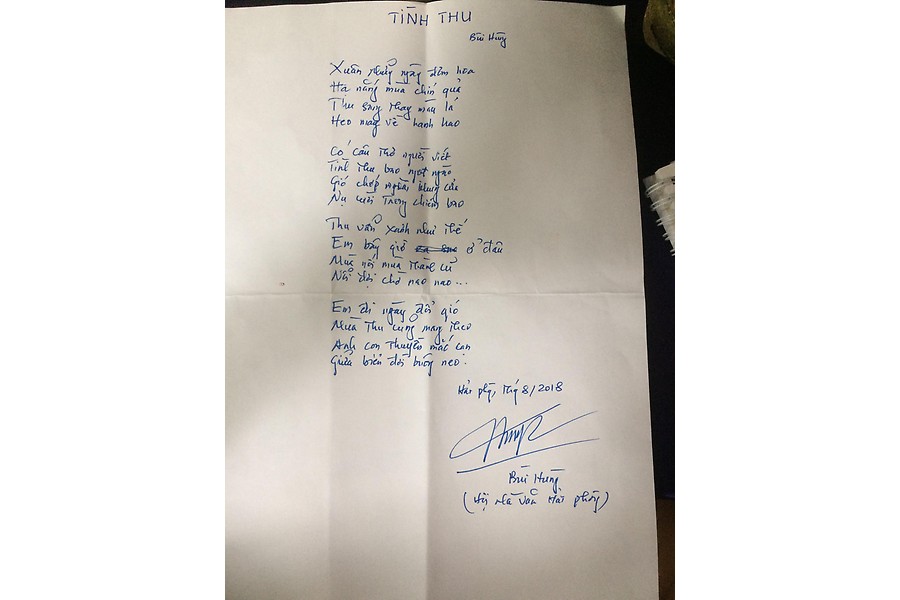 TÌNH THU
Bùi Hùng
Xuân những ngày đơm hoa
Hạ nắng mưa chín quả
Thu sang thay màu lá
Heo may về hanh hao
Có câu thơ người viết
Tình thu bao ngọt ngào
Gió chớp ngoài khung cửa
Nụ cười trong chiêm bao
Thu vẫn xanh như thế
Em bây giờ ở đâu
Mùa nối mùa thành cũ
Nỗi đợi chờ nao nao...
Em đi ngày đổi gió
Mùa thu cũng mang theo
Anh con thuyền mắc cạn
Giữa biển đời buông neo.
Hải phg, thg 8/2018
Bùi Hùng
(Hội nhà văn Hải phòng)